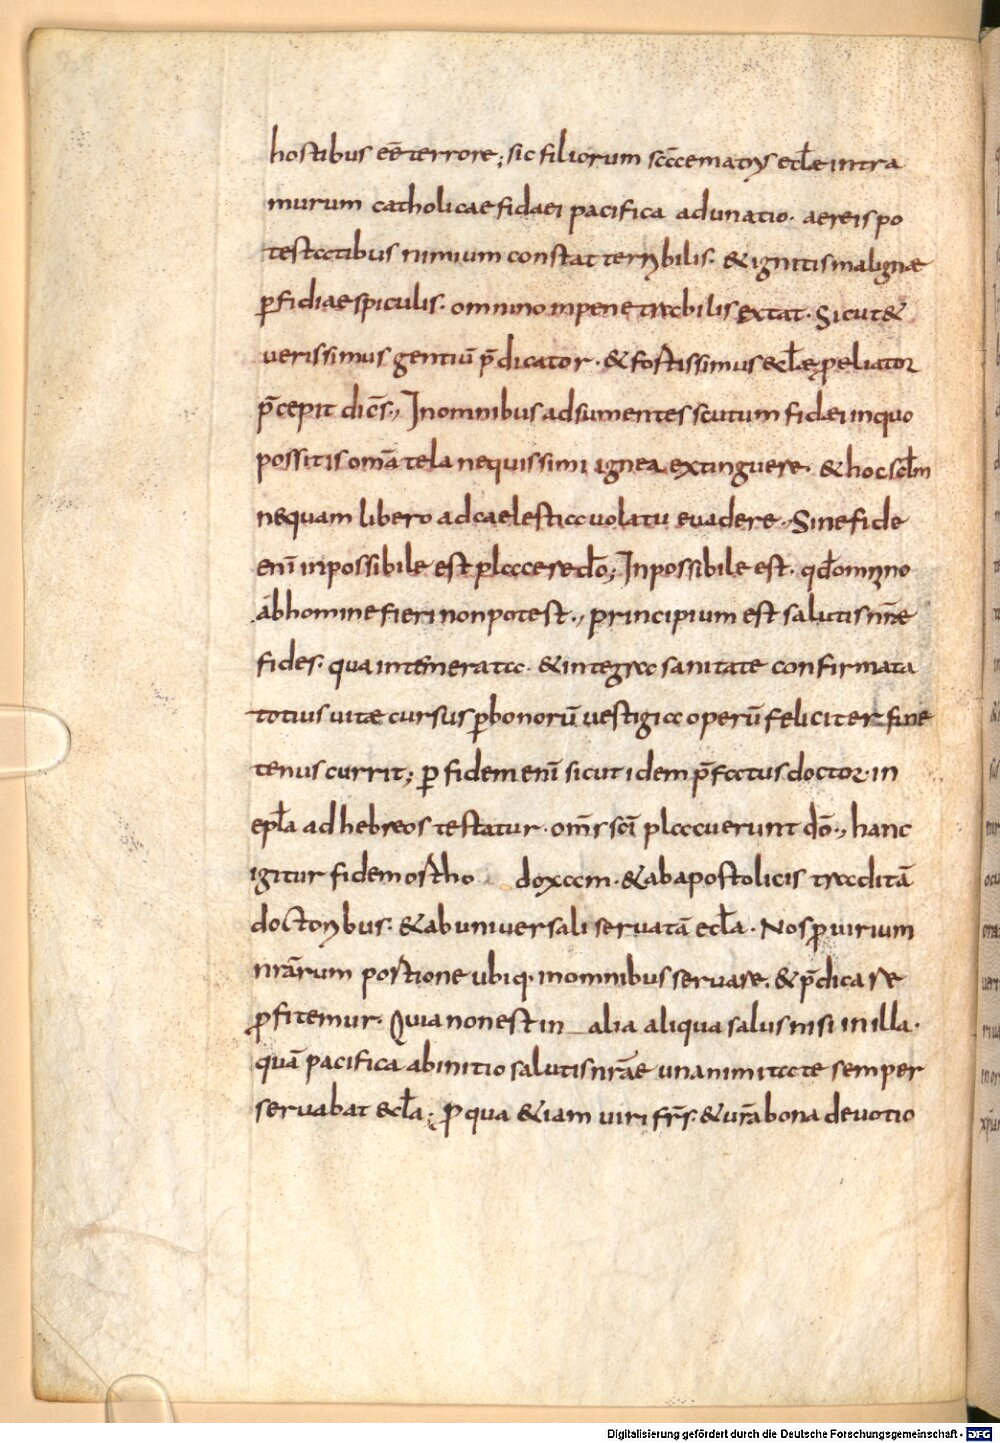 hostibus eē terrore; sic filiorum scāe matris ecl̄ae intra
murum catholicae fidaei pacifica adunatio· aereis po
testatibus nimium constat terribilis· & ignitis malignae
ꝑfidiae spiculis· omnino inpenetrabilis extat· Sicut &
uerissimus gentiū p̄dicator· & fortissimus ecl̄ę p̱eliator
p̄cepit dic̄s·, In omnibus adsumentes scutum fidaei in quo
possitis omā tela nequissimi ignea extinguere· & hoc sc̄lm
nequam libero ad caelestia uolatu euadere·, Sine fide
enī inpossibile est placere dō; Inpossibile est· qd̄ omnino
ab homine fieri non potest·, principium est salutis nr̄ae
fides· qua intemerata· & integra sanitate confirmata
totius uitae cursus ꝑ bonorū uestigia operū feliciter fine
tenus currit; ꝑ fidem enī sicut idem p̄fatus doctor in
epl̄a ad hebreos testatur· om̄s scī placuerunt dō·, hanc
igitur fidem ortho doxam· & ab apostolicis traditā
doctoribus· & ab uniuersali seruatā ecl̄a· Nos ꝓ uirium
nr̄arum portione ubiq· in omnibus seruare· & p̄dicare
ꝓfitemur· Quia non est in alia aliqua salus nisi in illa·
quā pacifica ab initio salutis nr̄ae unanimitate semper
seruabat ecl̄a; Pro qua & iam uiri fr̄s· & ur̄a bona deuotio
Digitalisierung gefördert durch die Deutsche Forschungsgemeinschaft - DFG